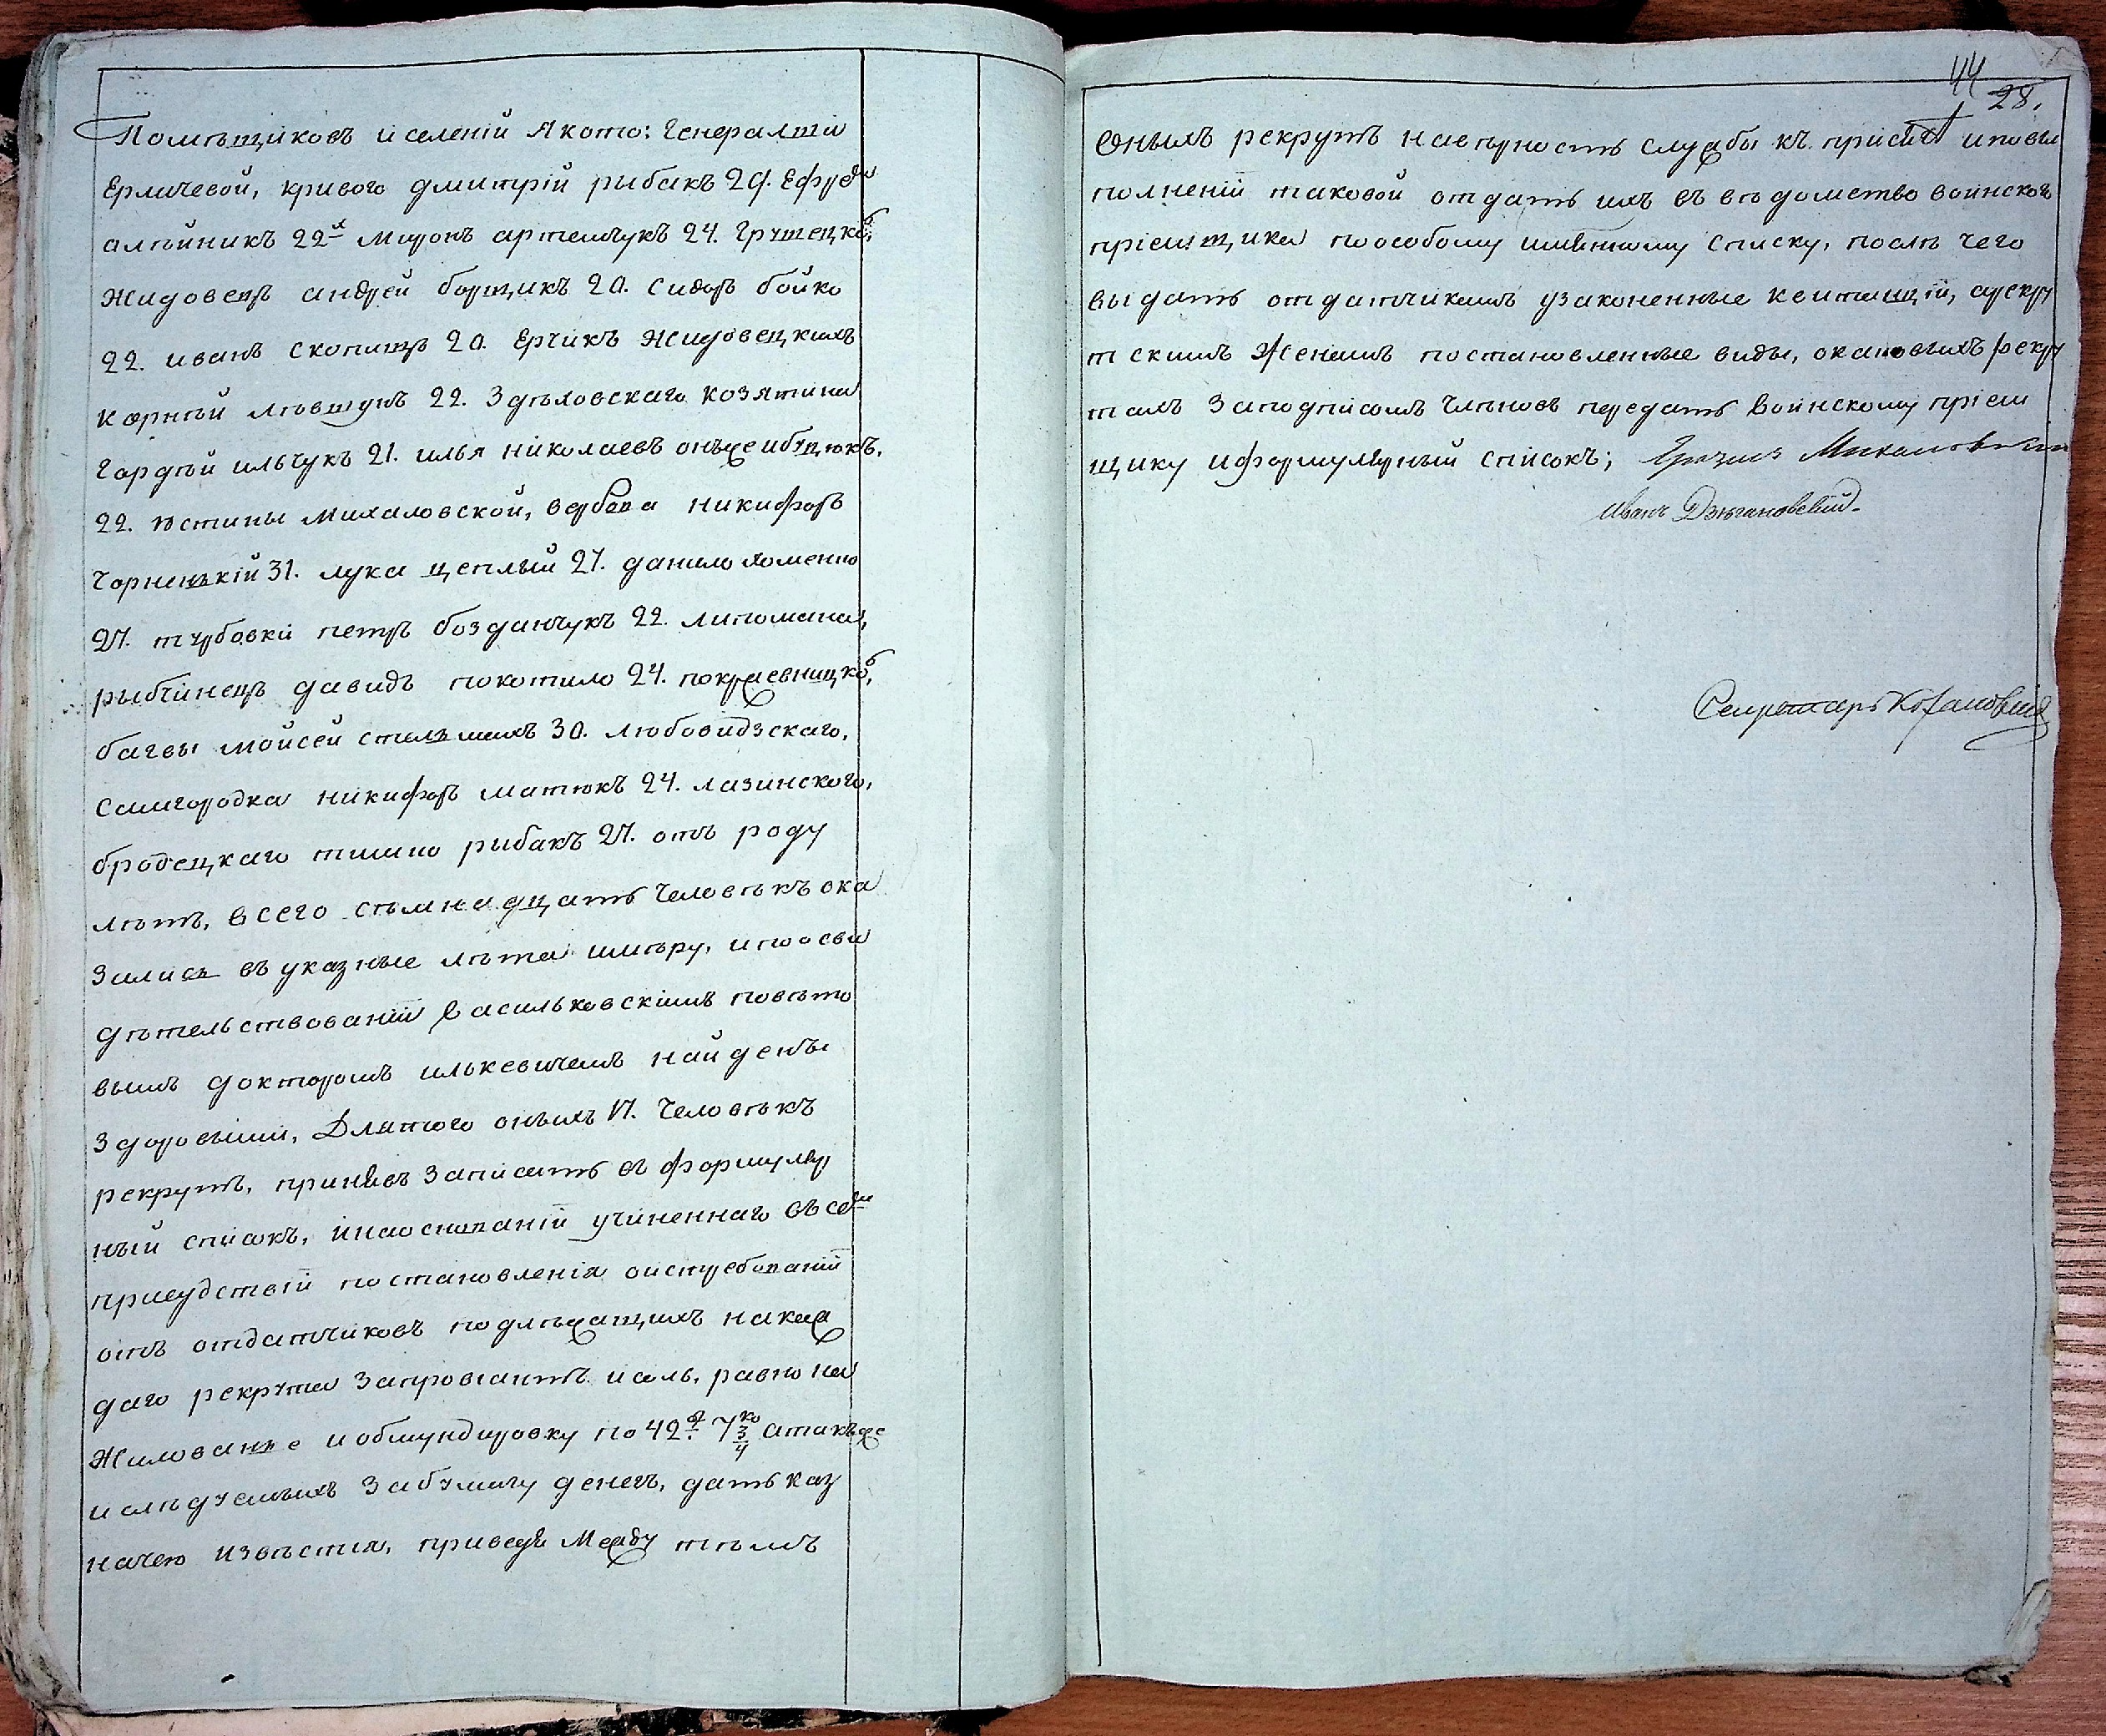 Помѣщиковъ и селеній Якото: Генералши
Ермичевой, кривого дмитрій рыбакъ 20.
алѣйникъ 22х Миронъ артемчукъ 24. Грушецко֗в,
Жидовецъ андрей борщикъ 20. Сидоръ бойко
22. иванъ 20. Ерчикъ Жидовецкихъ
Корнѣй лѣвшунъ 22. Здѣховскаго козятина
Гордѣй ильчукъ 21. илья николаевъ онъже
22. юстины Михаловской, вербова никифоръ
Чорненькій 31. лука цеплый 21. данило хоменко
27. турбовки петръ бозданчукъ 22. липомана,
рыбчинецъ давидъ покотило 24.
багвы мойсей стельмахъ 30. любовидзскаго,
Самгородка никифоръ матюкъ 24. лазинского,
бродецкаго тишко рыбакъ 27. отъ роду
лѣтъ, всего сѣмнадцать человѣкъ ока
зались въ указные лѣта имѣру, ипоосви
дѣтельствованій васильковскимъ повѣто
вымъ докторомъ илькевичемъ найдены
здоровыми, Длятого оныхъ 17. человѣкъ
рекрутъ, принявъ записать въ формуляр
ный списокъ, инаоснованій учиненнаго въ сем
присудствій постановленія оистребованій
отъ отдатчиковъ подлѣжащихъ накаж
даго рекрута запровіантъ исоль, равно на
Жилованье иобмундировку по 42р. 7 3/4 ко атакъже
ислѣдуемыхъ забумагу денегъ, дать каз
начею извѣстія, приведя Между тѣмъ
44
28.
Оныхъ рекрутъ навѣрность службы къ присягѣ иповы
полненій таковой отдать ихъ въ вѣдомство воинского
пріемщика поособому имянному списку, послѣ чего
выдать отдатчикамъ узаконенные квитанцій, арекру
тскимъ Женамъ постановленные виды, окаковыхъ рекру
тахъ Заподписомъ Членовъ передать воинскому пріем
щику иформулярный списокъ; Михаловскій
Иванъ Дзюгановскій.
Секретарь